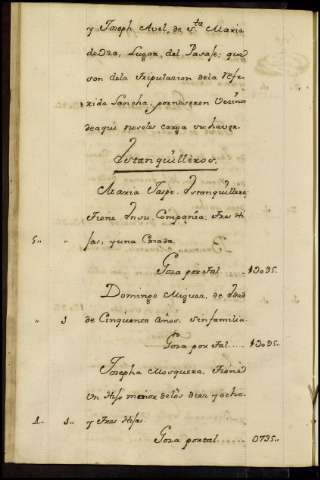 y Joseph Avel, de Sta. Maria
de Oza, Lugar, del Pasaje: que
son dela tripulacion dela refe-
rida Lancha, por no seren Vecin.
de aqui no seles carga su haver.
Estanquilleros.
Maria Taspe, Estanquillera,
tiene Ensu Compañia, tres Hi
5.. " jas, y una Criada.
Goza por tal
Domingo Miguez, de Edad
" 1 de Cinquenta años. Sin familia.
Goza por tal.....
Josepha Mosquera, tiene
Un Hijo menor delos diez y ocho,
1.. 1.. y tres Hijas.
Goza por tal....... 0735..